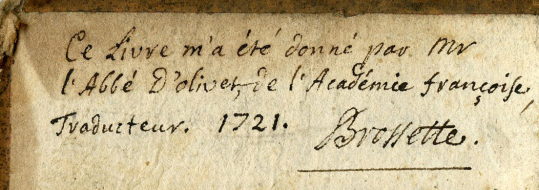 Ce Livre m'a été donné par Mr
l'Abbé D'olivet, de l'Académie françoise,
Traducteur. 1721. Brossette.